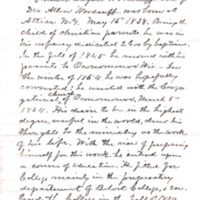 Dea Allen Woodruff was born at
Attica N.Y. May 16th 1838. Being the
child of christian parents he was in
his infancy dedicated to God by baptism.
In the fall of 1845 he moved with his
parents to Oconomowoc Wis. In
the winter of 1854 he was hopefully
converted; he united with the Congre
gational church of Oconomowoc, March 5th
His desire to be in the highest
degree, useful in the world, drew his
thoughts to the ministry as the work
of his life. With the view of preparing
himself for this work he entered upon
a course of education. He fitted for
College mainly in the preparatory
department of Beloit College,
College in the fall of